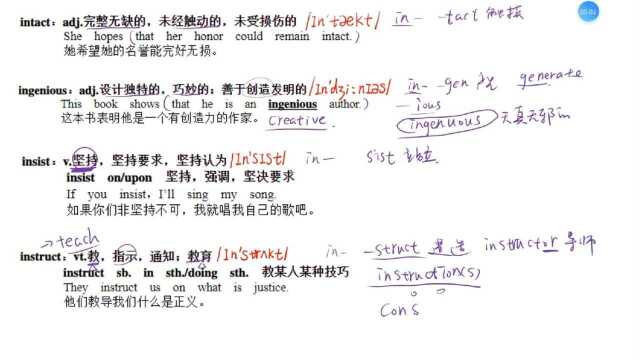 intact: adj.完整无缺的，未经触动的，未受损伤的 /In'tækt/ in- -tact 触摸
She hopes (that her honor could remain intact.)
她希望她的名誉能完好无损。
ingenious: adj.设计独特的，巧妙的；善于创造发明的/In'dʒi:nIəs/ in- -gen 产 generate
This book shows (that he is an ingenious author.) -ious
这本书表明他是一个有创造力的作家。 Creative ingenuous 天真无邪的
insist: v.坚持，坚持要求，坚持认为 /In'sIst/ in- sist 站立
insist on/upon 坚持，强调，坚决要求
If you insist, I'll sing my song.
如果你们非坚持不可，我就唱我自己的歌吧。
→teach
instruct: vt.教，指示，通知；教育 /In'strʌkt/ in- -struct 建造 instructor 导师
instruct sb. in sth./doing sth. 教某人某种技巧 instruction(s)
They instruct us on what is justice. cons
他们教导我们什么是正义。